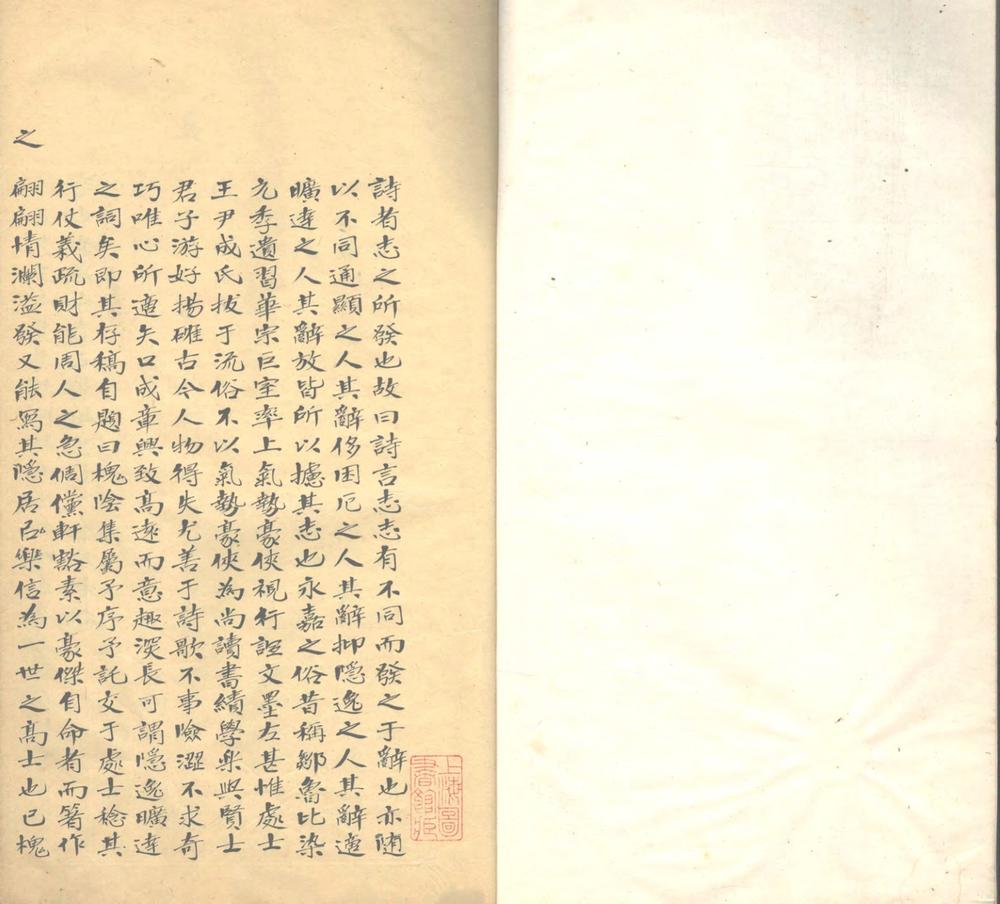 詩者志之所發也故曰詩言志志有不同而發之于辭也亦随
以不同通顯之人其辭侈困厄之人其辭抑隱逸之人其辭適
曠達之人其辭放皆所以攄其志也永嘉之俗昔稱鄒魯比染
元季遺習華宗巨室率上氣勢豪俠視行誼文墨左甚惟處士
王尹成氏拔于流俗不以氣勢豪俠為尚讀書績學樂與賢士
君子游好揚確古今人物得失尤善于詩歌不事險澀不求奇
巧唯心所適矢口成章興致高遠而意趣深長可謂隱逸曠達
之詞矣即其存稿自題曰槐陰集屬予序予託交于處士稔其
行仗義疏財能周人之急倜儻軒豁素以豪傑自命者而箸作
之
翩翩情瀾溢發又能寫其隱居之樂信為一世之高士也已槐
上海圖書館藏